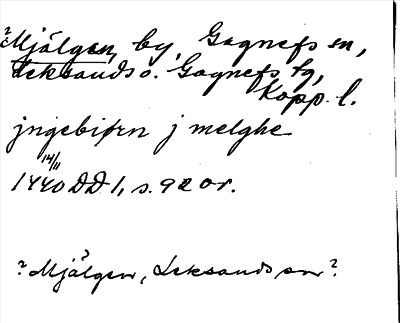 ? Mjälgen, by, Gagnefs sn,
Leksands o. Gagnefs tg,
Kopp. l.
jngebiørn j melghe
14/11
1440 DD 1, s. 92 or.
? Mjälgen, Leksands sn?